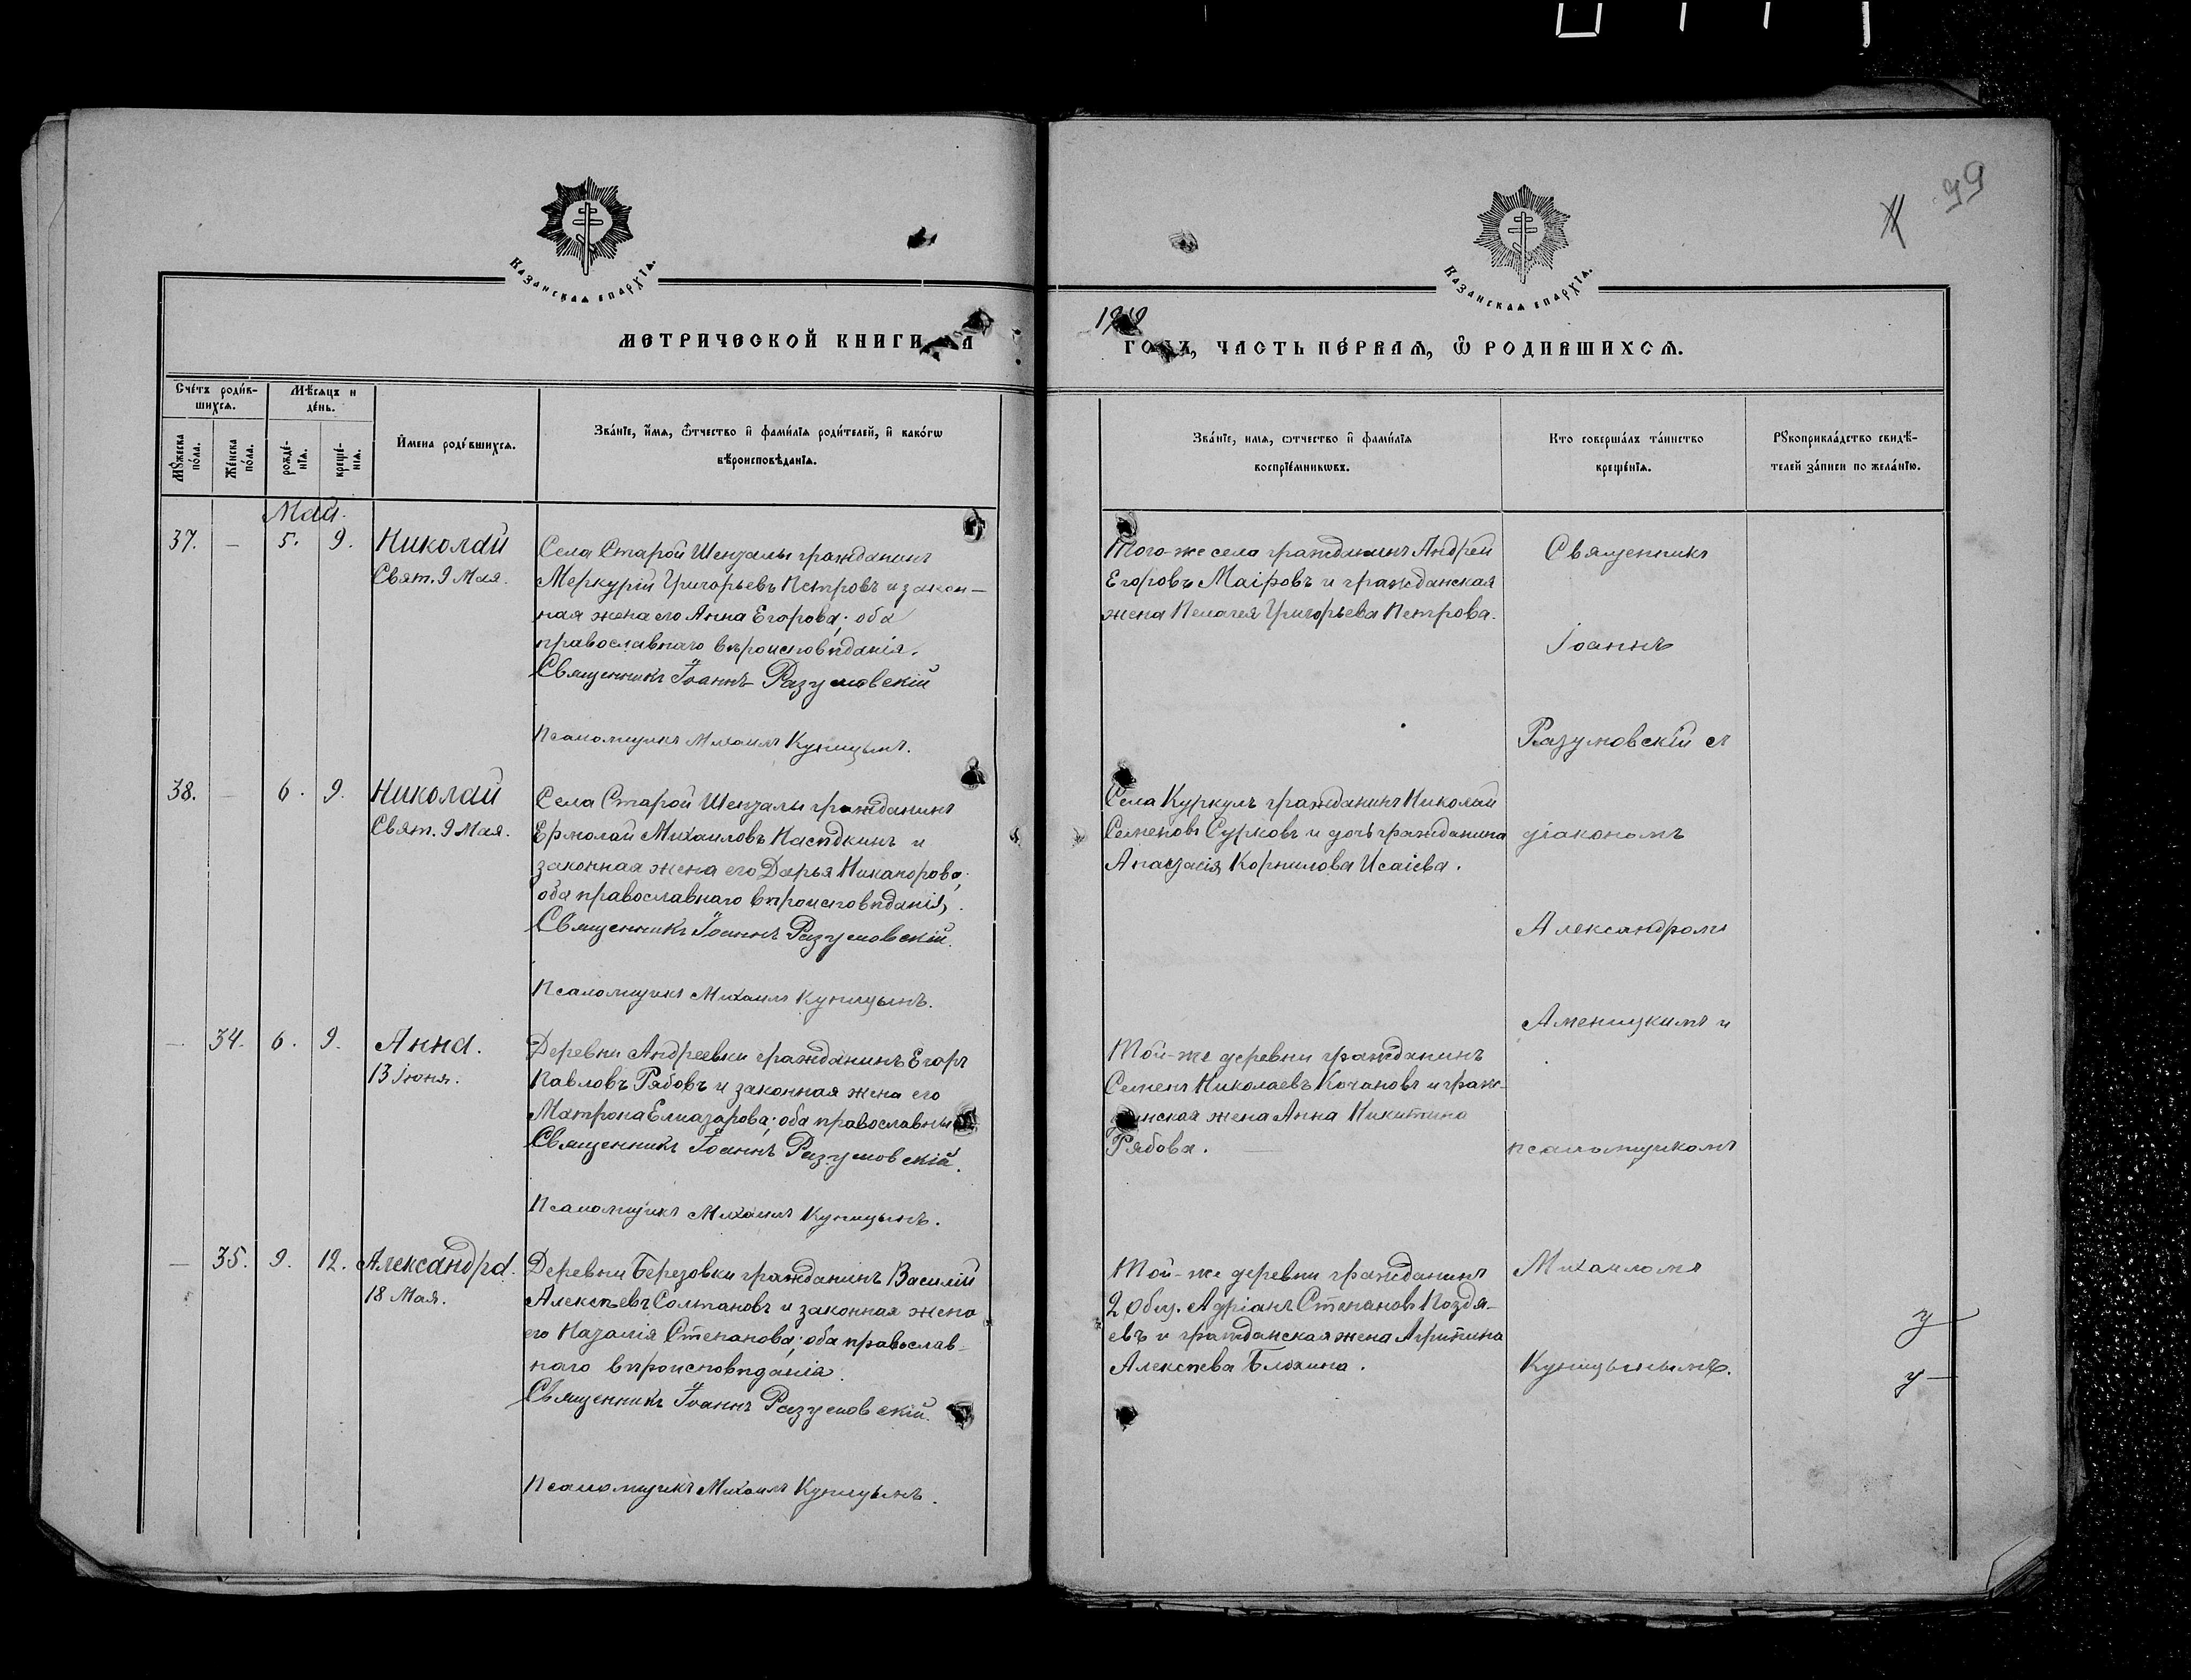 39
Казанская епархїѧ.
Казанская епархїѧ.
МЕТРИЧЕСКОЙ КНИГИ НА
19
ГОДЪ, ЧАСТЬ ПЕ́РВАѦ, Ѿ РОДИВШИХСѦ.
Сче́тъ роди́в-
шихсѧ.
Мѣ́сѧцъ и
де́нь.
Мꙋ́жеска
по́ла.
Же́нска
по́ла.
рожде́-
нїѧ.
креще́-
нїѧ.
И́мена роди́вшихсѧ.
Зва́нїе, и́мѧ, ѻ҆́тчество и҆ фами́лїѧ роди́телей, и҆ како́гѡ
вѣроисповѣ́данїѧ.
Зва́нїе, имѧ, ѻтчество и҆ фами́лїѧ
воспрїе́мникѡвъ.
Кто соверша́лъ та́инство
креще́нїѧ.
Рꙋкоприкла́дство свидѣ́-
телей за́писи по жела́нїю.
Май.
37. — 5. 9. Николай
Свят. 9 Мая.
Села Старой Шензалы гражданинъ
Меркурій Григорьевъ Петровъ и закон-
ная жена его Анна Егорова; оба
православнаго вѣроисповѣданія.
Священникъ Іоаннъ Разумовскій
Псаломщикъ Михаилъ Куницынъ.
Того-же села гражданинъ Андрей
Егоровъ Маіровъ и гражданская
жена Пелагея Григорьева Петрова.
Священникъ
Іоаннъ
Разумовскій съ
38. — 6. 9. Николай
Свят. 9 Мая.
Села Старой Шензалы гражданинъ
Ермолай Михаиловъ Насѣдкинъ и
законная жена его Дарья Никанорова;
оба православнаго вѣроисповѣданія,
Священникъ Іоаннъ Разумовскій.
Псаломщикъ Михаилъ Куницынъ.
Села Куркулъ гражданинъ Николай
Семеновъ Сурковъ и дочь гражданина
Корнилова Исаіева.
діакономъ
Александромъ
Аменицкимъ и
— 34. 6. 9. Анна.
13 Іюня.
Деревни Андреевки гражданинъ Егоръ
Павловъ Рябовъ и законная жена его
Матрона Елиазарова; оба православны
Священникъ Іоаннъ Разумовскій.
Псаломщикъ Михаилъ Куницынъ.
Той-же деревни гражданинъ
Семенъ Николаевъ Кочановъ и граж-
нская жена Анна Никитина
Рябова.
псаломщикомъ
— 35. 9. 12. Александра.
18 Мая.
Деревни Березовки гражданинъ Василій
Алексѣевъ Солтановъ и законная жена
его Наталія Степанова; оба православ-
наго вѣроисповѣданія.
Священникъ Іоаннъ Разумовскій.
Псаломщикъ Михаилъ Куницынъ.
Той-же деревни гражданинъ
2 общ. Адріанъ Степановъ Поздя-
евъ и гражданская жена Агрипина
Алексѣева Блохина.
Михаиломъ
Куницынымъ.